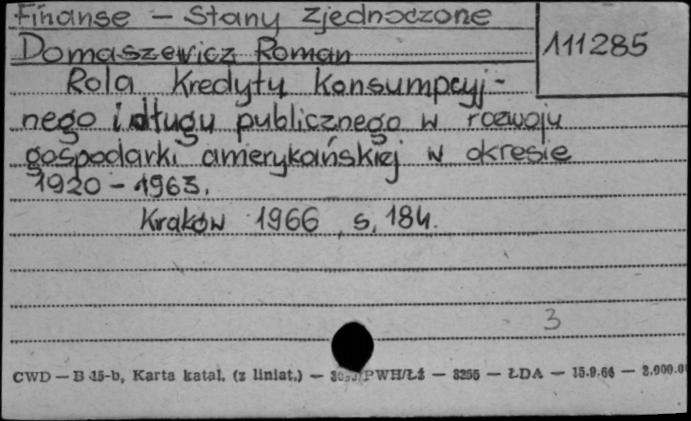 Finanse – Stany Zjednoczone
111285
Domaszewicz Roman
Rola Kredytu Konsumpcyj-
nego i długu publicznego w rozwoju
gospodarki amerykańskiej w okresie
1920 – 1963.
Kraków 1966 s. 184.
3
CWD — B 15-b, Karta katal. (z liniat.) — PWH/Łź — 3255 — ŁDA — 15.9.64 —